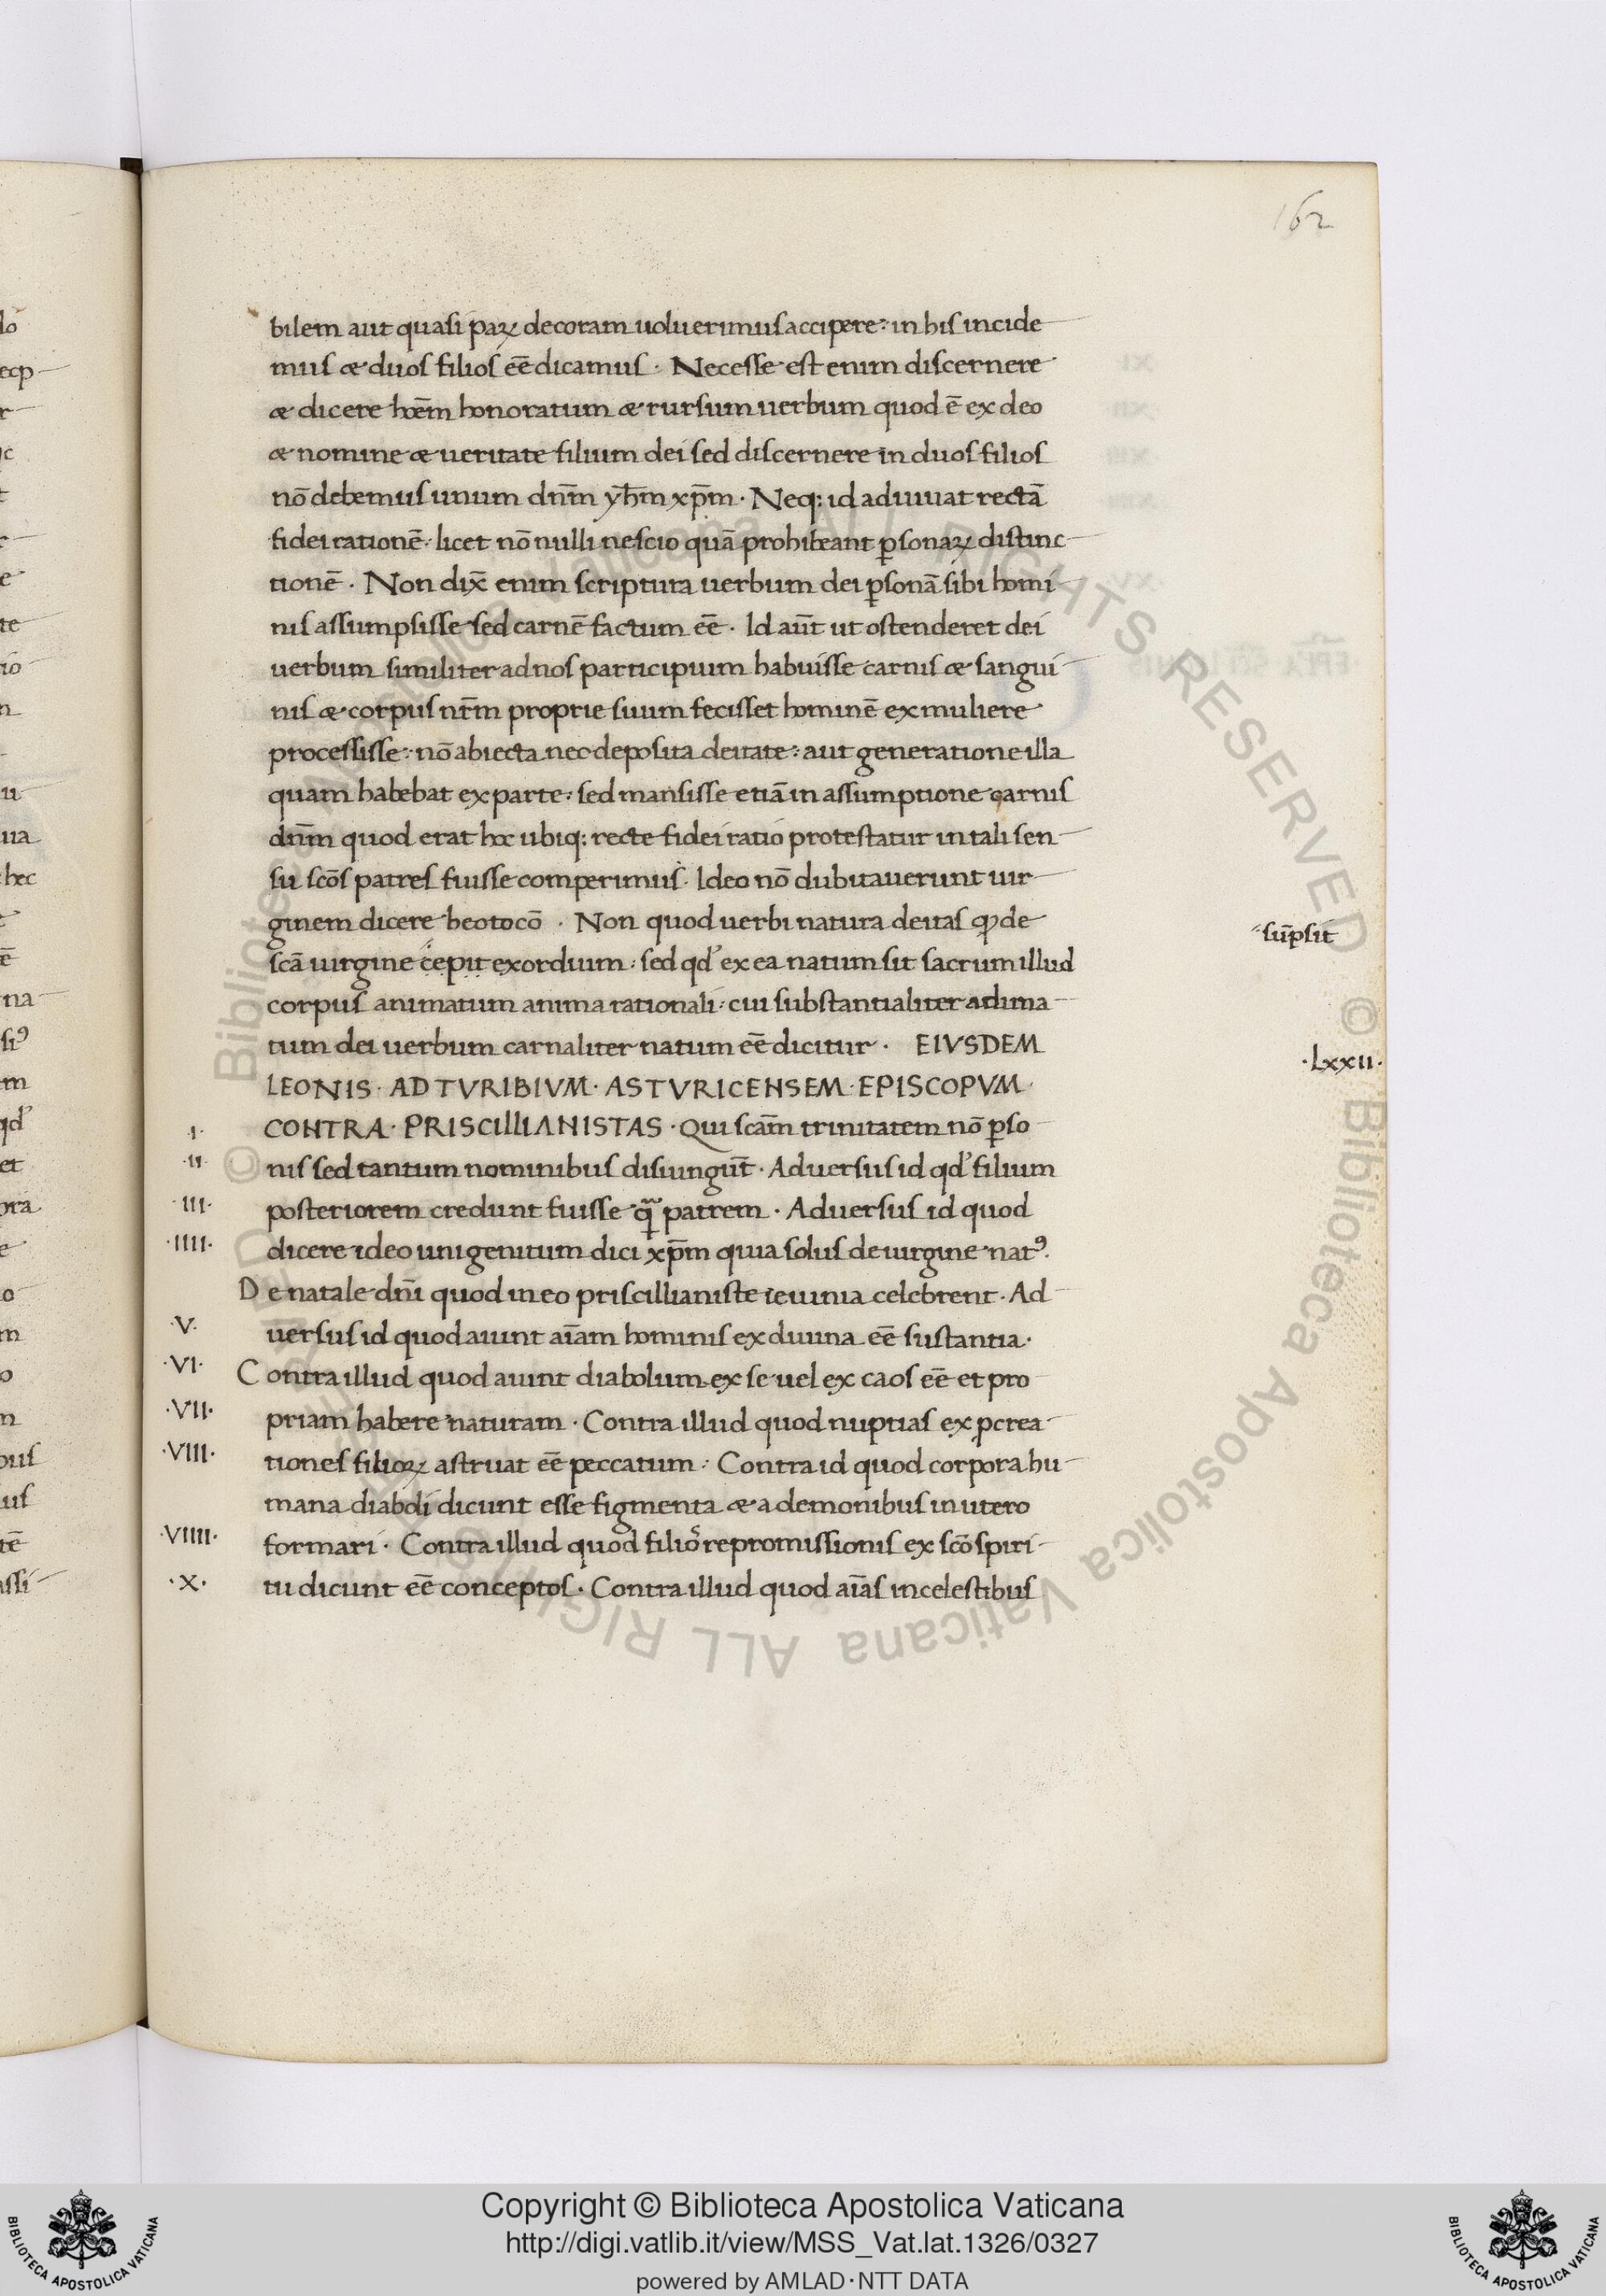 162
bilem aut quasi paꝝ decoram uoluerimus accipere: in his incide
mus & duos filios eē dicamus. Necesse est enim discernere
& dicere hoēm honoratum & rursum uerbum quod ē ex deo
& nomine & ueritate filium dei sed discernere in duos filios
nō debemus unum dn̄m yh̄m xp̄m. Neq; id adiuuat rectā
fidei rationē. licet nō nulli nescio quā prohibeant ꝑsonaꝝ distinc
tionē. Non dix̄ enim scriptura uerbum dei ꝑsonā sibi homi
nis assumpsisse sed carnē factum eē. Id aūt ut ostenderet dei
uerbum similiter ad nos participium habuisse carnis & sangui
nis & corpus nr̄m proprie suum fecisset hominē ex muliere
processisse: nō abiecta nec deposita deitate: aut generatione illa
quam habebat ex parte: sed mansisse etiā in assumptione carnis
dn̄m quod erat hoc ubiq; recte fidei ratio protestatur in tali sen
su scōs patres fuisse comperimus. Ideo nō dubitauerunt uir
ginem dicere beotocō. Non quod uerbi natura deitas ꝙ de
scā uirgine cepit exordium: sed qd' ex ea natum sit sacrum illud
sūpsit
corpus animatum anima rationali: cui substantialiter aduna
tum dei uerbum carnaliter natum eē dicitur. EIVSDEM
·LXXII·
LEONIS· AD TVRIBIVM· ASTVRICENSEM· EPISCOPVM·
·I· CONTRA· PRISCILLIANISTAS· Qui scām trinitatem nō ꝑso
·II· nis sed tantum nominibus disiungūt. Aduersus id qd' filium
·III· posteriorem credunt fuisse q̄ patrem. Aduersus id quod
·IIII· dicere ideo unigenitum dici xp̄m quia solus de uirgine natꝰ.
De natale dn̄i quod in eo priscillianiste ieiunia celebrent. Ad
·V· uersus id quod aiunt aīam hominis ex diuina eē sustantia.
·VI· Contra illud quod aiunt diabolum ex se uel ex caos eē et pro
·VII· priam habere naturam. Contra illud quod nuptias ex pcrea
·VIII· tiones filioꝝ astruat eē peccatum. Contra id quod corpora hu
mana diaboli dicunt esse figmenta & a demonibus in utero
·VIIII· formari. Contra illud quod filiōs repromissionis ex scō spiri
·X· tu dicunt eē conceptos. Contra illud quod aīas in celestibus
Copyright © Biblioteca Apostolica Vaticana
http://digi.vatlib.it/view/MSS_Vat.lat.1326/0327
powered by AMLAD·NTT DATA